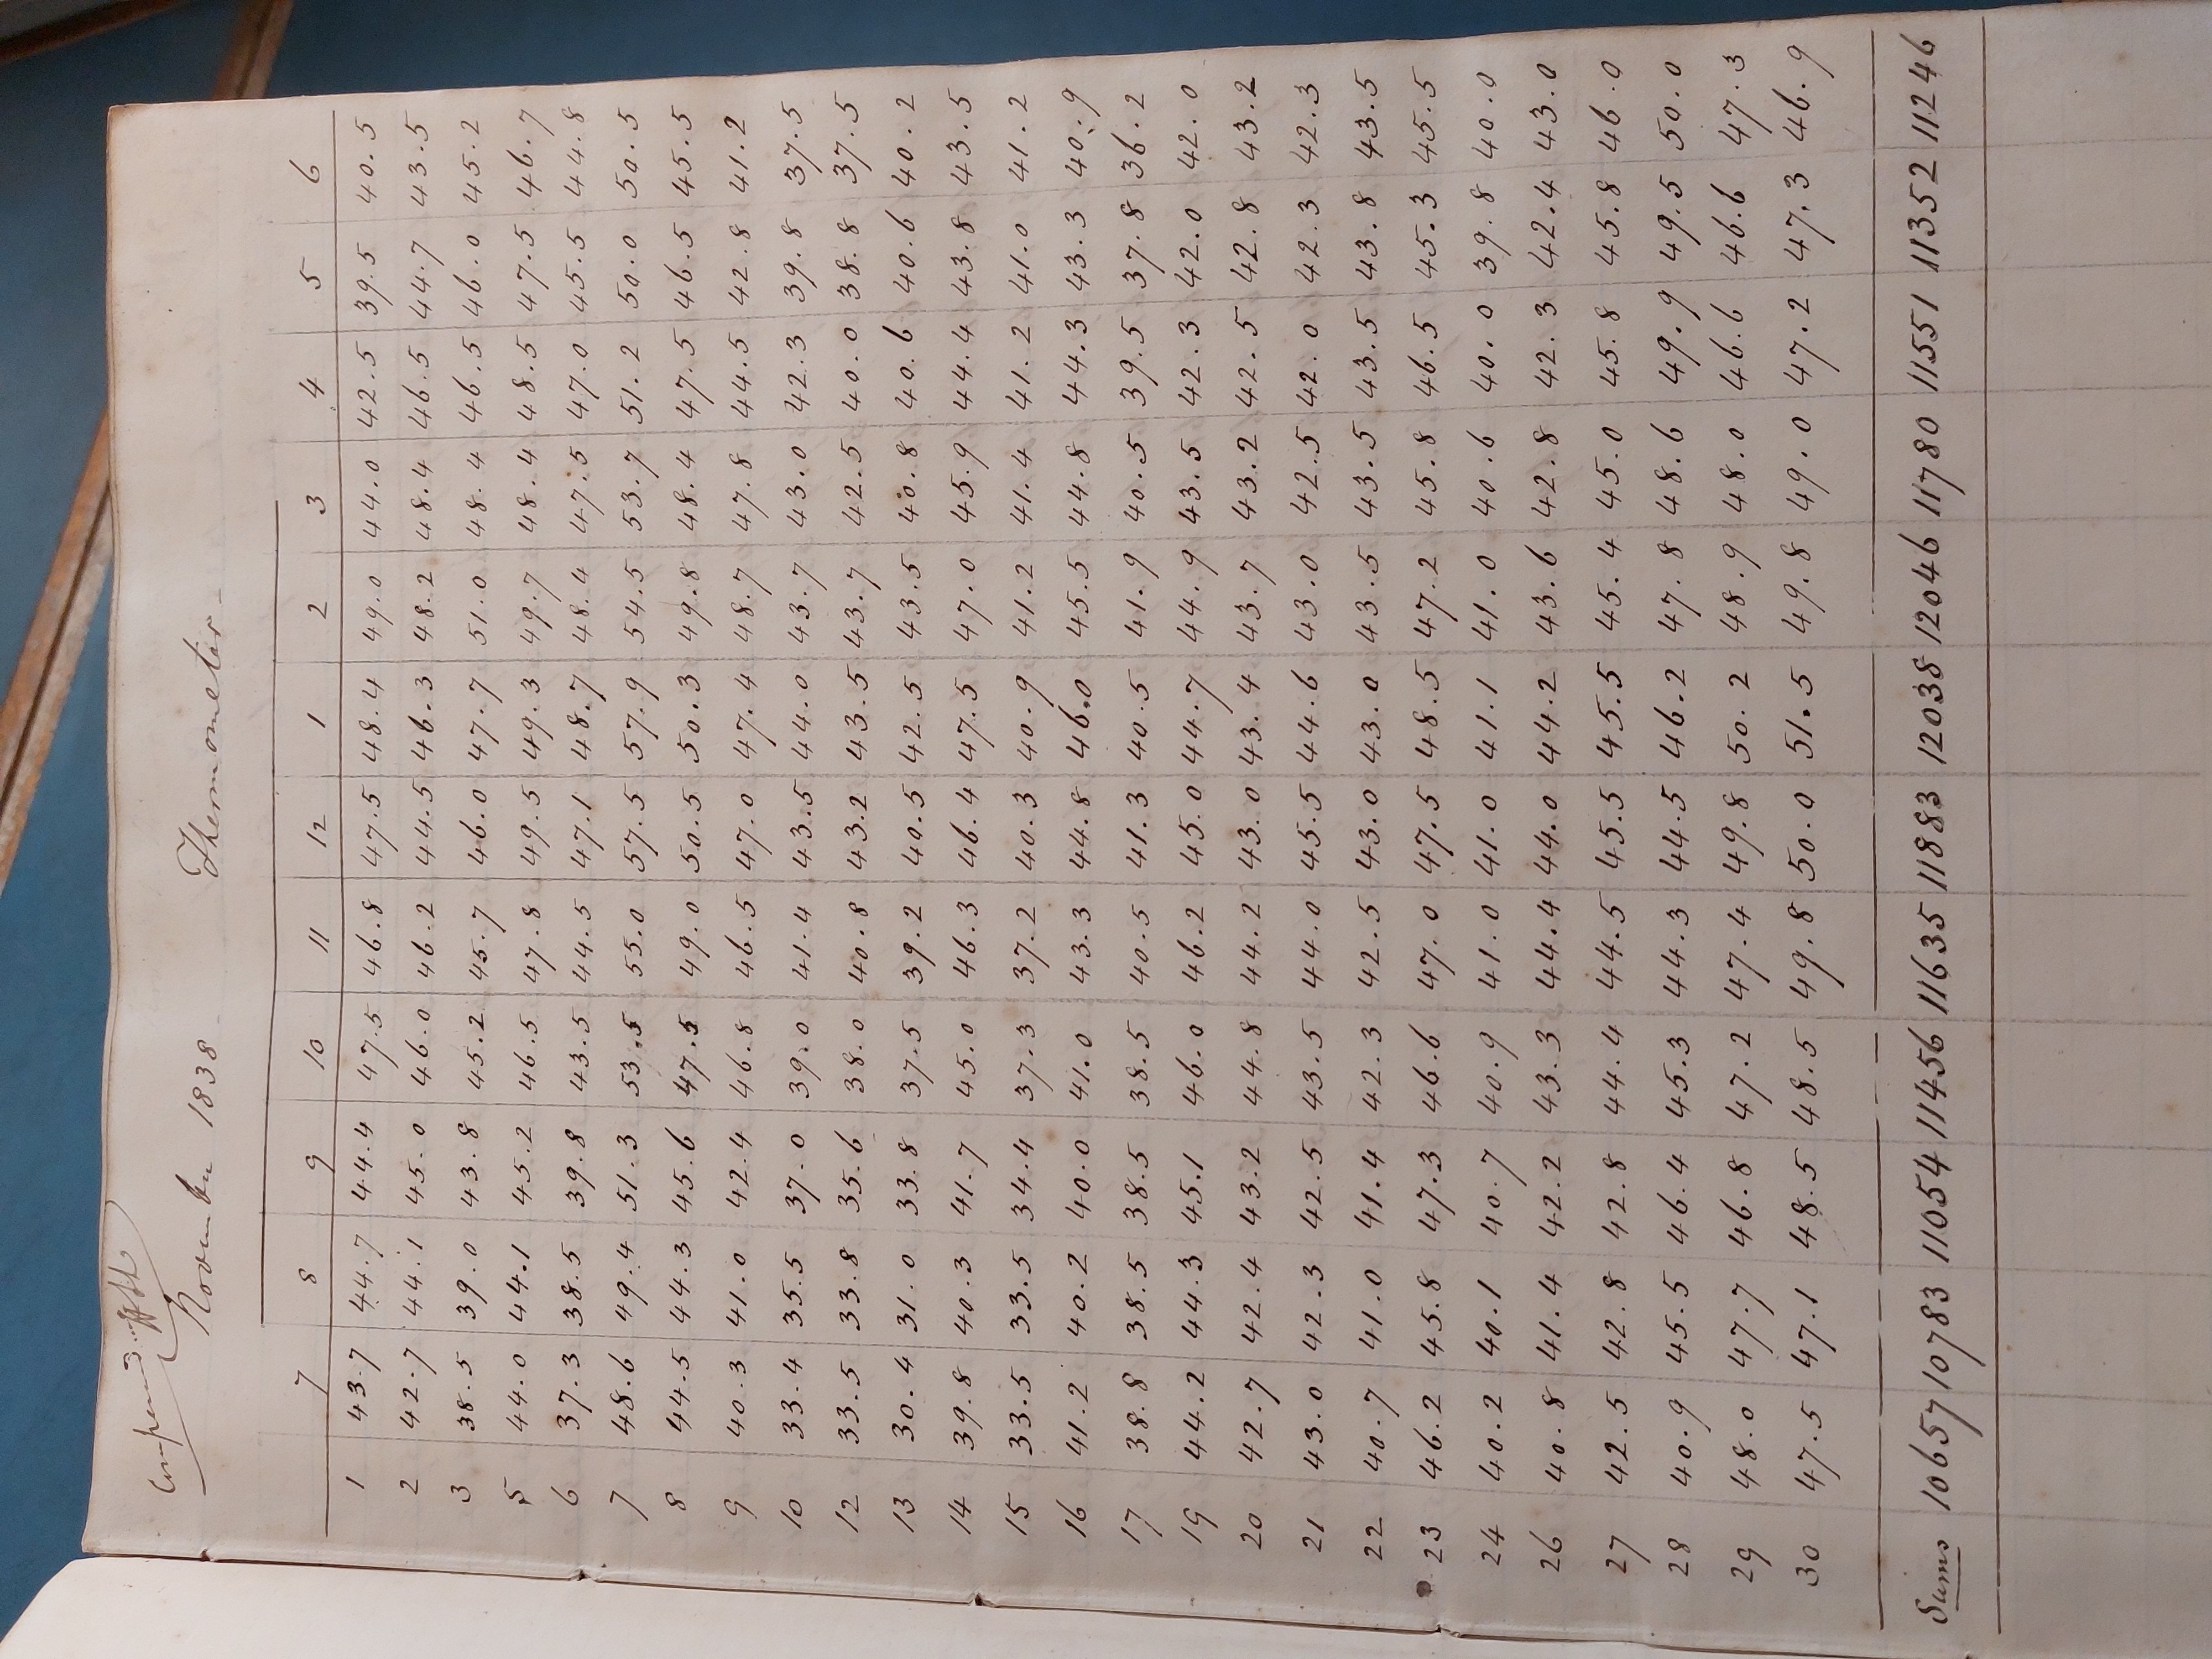 Compared
November 1838 Thermometer
7 8 9 10 11 12 1 2 3 4 5 6
1 43.7 44.7 44.4 47.5 46.8 47.5 48.4 49.0 44.0 42.5 39.5 40.5
2 42.7 44.1 45.0 46.0 46.2 44.5 46.3 48.2 48.4 46.5 44.7 43.5
3 38.5 39.0 43.8 45.2 45.7 46.0 47.7 51.0 48.4 46.5 46.0 45.2
5 44.0 44.1 45.2 46.5 47.8 49.5 49.3 49.7 48.4 48.5 47.5 46.7
6 37.3 38.5 39.8 43.5 44.5 47.1 48.7 48.4 47.5 47.0 45.5 44.8
7 48.6 49.4 51.3 53.5 55.0 57.5 57.9 54.5 53.7 51.2 50.0 50.5
8 44.5 44.3 45.6 47.5 49.0 50.5 50.3 49.8 48.4 47.5 46.5 45.5
9 40.3 41.0 42.4 46.8 46.5 47.0 47.4 48.7 47.8 44.5 42.8 41.2
10 33.4 35.5 37.0 39.0 41.4 43.5 44.0 43.7 43.0 42.3 39.8 37.5
12 33.5 33.8 35.6 38.0 40.8 43.2 43.5 43.7 42.5 40.0 38.8 37.5
13 30.4 31.0 33.8 37.5 39.2 40.5 42.5 43.5 40.8 40.6 40.6 40.2
14 39.8 40.3 41.7 45.0 46.3 46.4 47.5 47.0 45.9 44.4 43.8 43.5
15 33.5 33.5 34.4 37.3 37.2 40.3 40.9 41.2 41.4 41.2 41.0 41.2
16 41.2 40.2 40.0 41.0 43.3 44.8 46.0 45.5 44.8 44.3 43.3 40.9
17 38.8 38.5 38.5 38.5 40.5 41.3 40.5 41.9 40.5 39.5 37.8 36.2
19 44.2 44.3 45.1 46.0 46.2 45.0 44.7 44.9 43.5 42.3 42.0 42.0
20 42.7 42.4 43.2 44.8 44.2 43.0 43.4 43.7 43.2 42.5 42.8 43.2
21 43.0 42.3 42.5 43.5 44.0 45.5 44.6 43.0 42.5 42.0 42.3 42.3
22 40.7 41.0 41.4 42.3 42.5 43.0 43.0 43.5 43.5 43.5 43.8 43.5
23 46.2 45.8 47.3 46.6 47.0 47.5 48.5 47.2 45.8 46.5 45.3 45.5
24 40.2 40.1 40.7 40.9 41.0 41.0 41.1 41.0 40.6 40.0 39.8 40.0
26 40.8 41.4 42.2 43.3 44.4 44.0 44.2 43.6 42.8 42.3 42.4 43.0
27 42.5 42.8 42.8 44.4 44.5 45.5 45.5 45.4 45.0 45.8 45.8 46.0
28 40.9 45.5 46.4 45.3 44.3 44.5 46.2 47.8 48.6 49.9 49.5 50.0
29 48.0 47.7 46.8 47.2 47.4 49.8 50.2 48.9 48.0 46.6 46.6 47.3
30 47.5 47.1 48.5 48.5 49.8 50.0 51.5 49.8 49.0 47.2 47.3 46.9
Sums 10657 10783 11054 11456 11635 11883 12038 12046 11780 11551 11352 11246